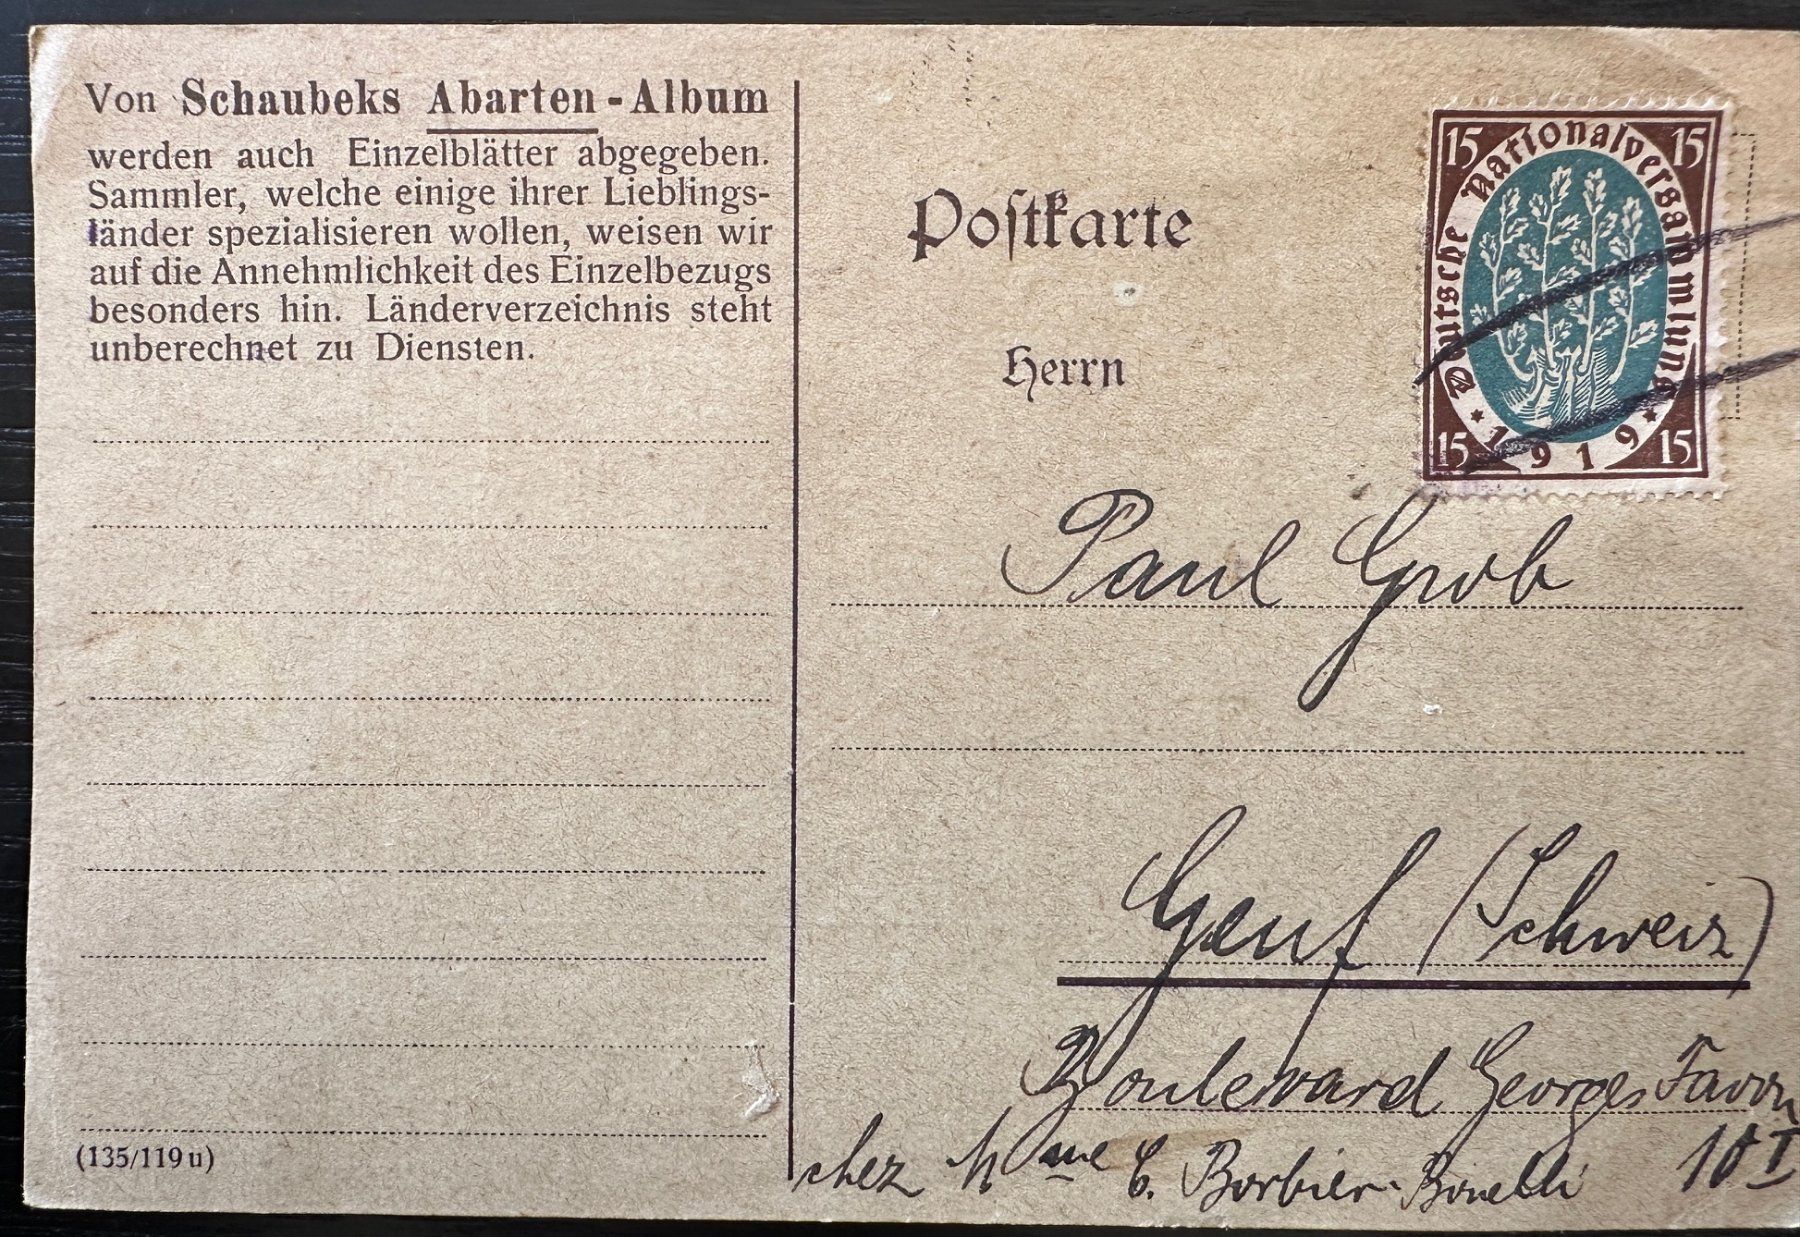 Von Schaubeks Abarten-Album
werden auch Einzelblätter abgegeben.
Sammler, welche einige ihrer Lieblings-
länder spezialisieren wollen, weisen wir
auf die Annehmlichkeit des Einzelbezugs
besonders hin. Länderverzeichnis steht
unberechnet zu Diensten.
(135/119 u)
Postkarte
15 15
Deutsche Nationalversammlung
* 1919 *
15 15
Herrn
Paul Grob
Genf (Schweiz)
Boulevard Georges Favon
chez Mme C. Borbier-Bonelli 10 I